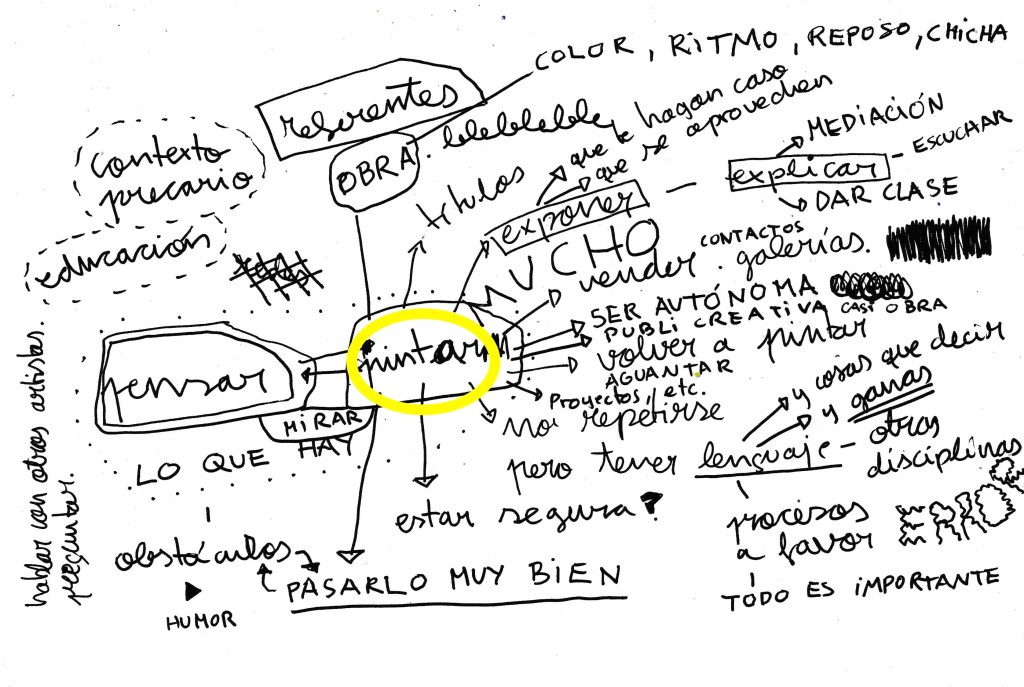 COLOR, RITMO, REPOSO, CHICHA
referentes
OBRA. bleblebleble
que le hagan caso
que se aprovechen
títulos
exponer
MEDIACIÓN
explicar - ESCUCHAR
DAR CLASE
contexto
precario
educación
MUCHO
CONTACTOS
vender. galerías.
SER AUTÓNOMA
PUBLI CREATIVA CASI OBRA
pintar
volver a pintar
AGUANTAR
Proyectos, etc.
pensar
MIRAR
LO QUE HAY
no repetirse
pero tener lenguaje - otras
disciplinas
y cosas que decir
y ganas
procesos
a favor
TODO ES IMPORTANTE
estar segura?
obstáculos
HUMOR
PASARLO MUY BIEN
hablar con otros artistas.
preguntar.